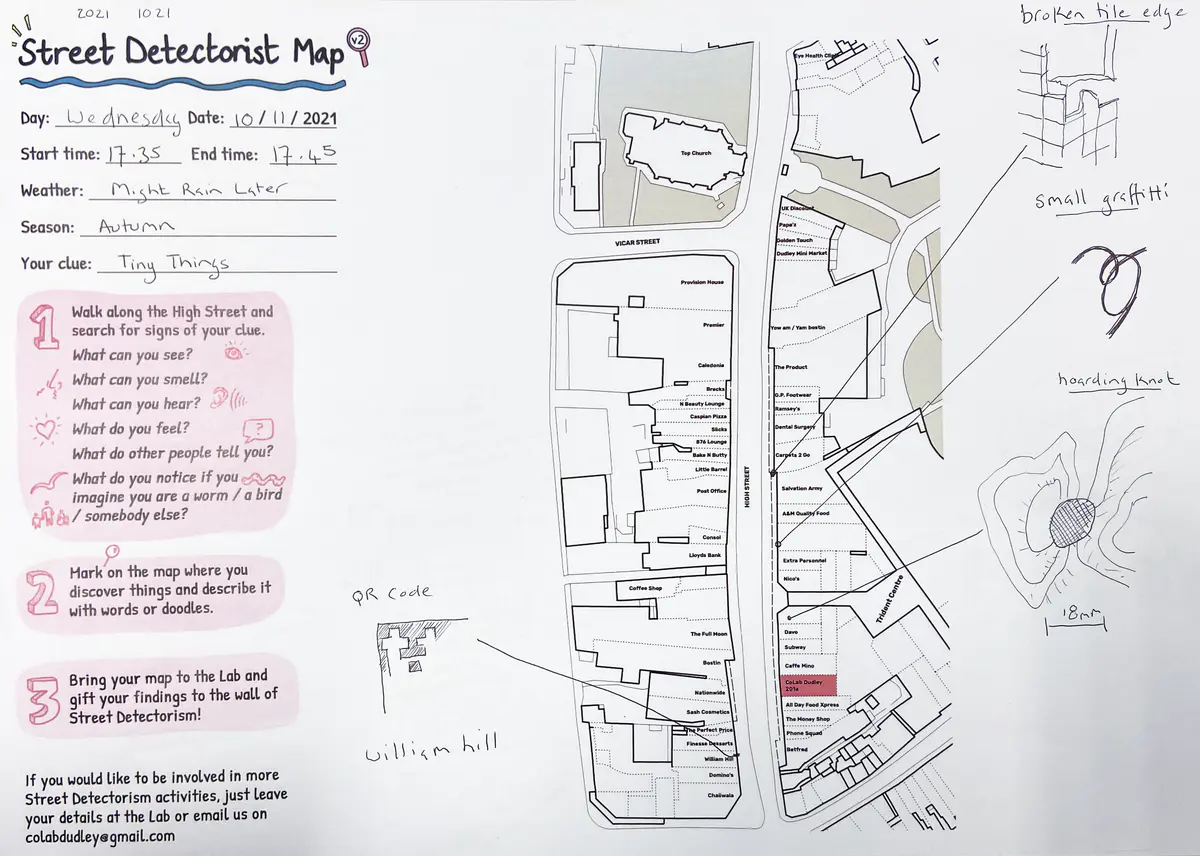 2021 1021
Street Detectorist Map v2
Day: Wednesday Date: 10/11/2021
Start time: 17.35 End time: 17.45
Weather: Might Rain Later
Season: Autumn
Your clue: Tiny Things
1
Walk along the High Street and
search for signs of your clue.
What can you see?
What can you smell?
What can you hear?
What do you feel?
?
What do other people tell you?
What do you notice if you
imagine you are a worm / a bird
/ somebody else?
2
Mark on the map where you
discover things and describe it
with words or doodles.
3
Bring your map to the Lab and
gift your findings to the wall of
Street Detectorism!
If you would like to be involved in more
Street Detectorism activities, just leave
your details at the Lab or email us on
colabdudley@gmail.com
QR Code
William hill
Top Church
VICAR STREET
Provision House
Premier
Caledonia
Brecks
N Beauty Lounge
Caspian Pizza
Slicks
#76 Lounge
Bake N Butty
Little Barrel
Post Office
Consol
Lloyds Bank
Coffee Shop
The Full Moon
Bostin
Nationwide
Sash Cosmetics
The Perfect Price
Finesse Desserts
William Hill
Domino's
Chaiiwala
HIGH STREET
Eye Health Clinic
UK Discount
Papa's
Golden Touch
Dudley Mini Market
Yow am / Yam bostin
The Product
G.P. Footwear
Ramsey's
Dental Surgery
Carpets 2 Go
Salvation Army
A&M Quality Food
Extra Personnel
Nico's
Trident Centre
Davo
Subway
Caffe Mino
CoLab Dudley
201a
All Day Food Xpress
The Money Shop
Phone Squad
Betfred
broken tile edge
small graffitti
hoarding knot
18mm